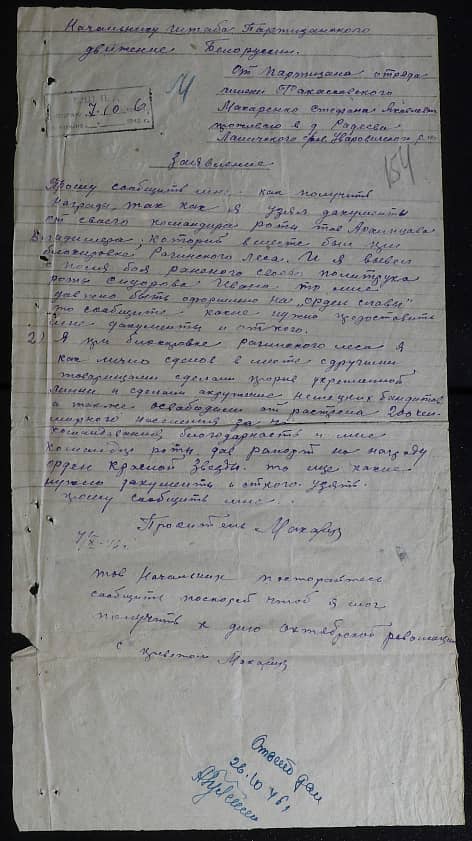 Начальнику штаба Партизанского
движение Белоруссии.
От Партизана отряда
имени
Макаренко Стефана Яковлевич
проживаю в д Радеева
Наровлянск р-н
7.10.6
14
154
Заявление
Прошу сообщить мне как получить
награды так как я узял дакументы
от своего командира роты тов
Владимера, который вместе был при
блокировке Рагинского леса. И я вывел
с поля боя раненого своего политрука
роты Сидорова Ивана то мне
должно быть оформлено на "орден славы"
то сообщите какие нужно предоставить
мне дакументы и от кого.
2) Я при блокировке рагинского леса я
как лично сделов в месте сдругими
товарищами сделали прорив укрепленой
линии и сделали акружение немецких бандитов
а также освабодили от растрела 200 чел
мирного населения за
командования благодарность и мне
командир роты дав рапорт на награду
орден Красной Звезды. то ище какие
нужно дакументы и откого узять.
прошу сообщить мне.
Проситель Макарен
тов Начальник постарайтесь
сообщить поскорей чтоб я мог
получить к дню октябрской революции
с приветом Макарен
Ответ дан
26.10.46 г.